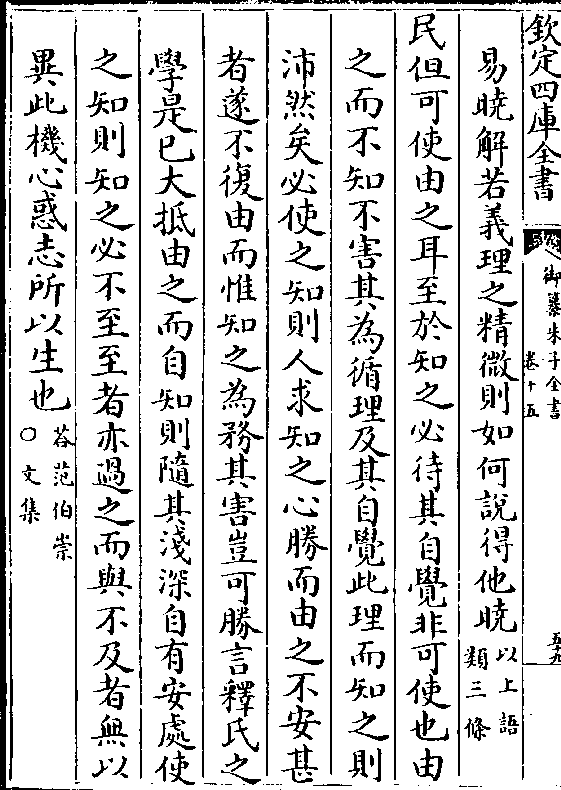 欽定四庫全書
御纂朱子全書
卷十五
五十九
易曉解若義理之精微則如何說得他曉以上語類三條
民但可使由之耳至於知之必待其自覺非可使也由
之而不知不害其為循理及其自覺此理而知之則
沛然矣必使之知則人求知之心勝而由之不安甚
者遂不復由而惟知之為務其害豈可勝言釋氏之
學是已大抵由之而自知則隨其淺深自有安處使
之知則知之必不至至者亦過之而與不及者無以
異此機心惑志所以生也答范伯崇○文集